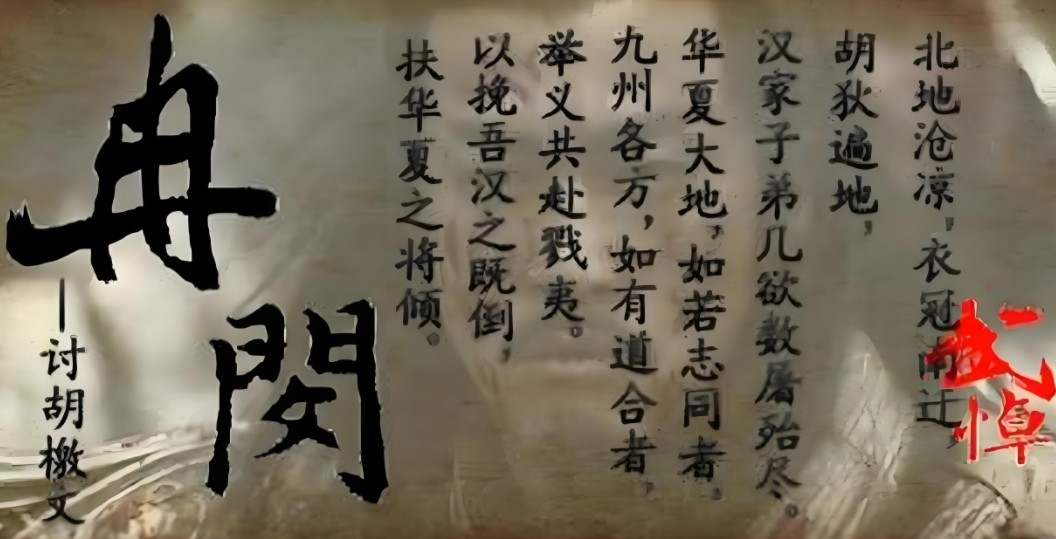 北地沧凉，衣冠南迁，
胡狄遍地，
汉家子弟几欲数屠殆尽。
华夏大地，如若志同者，
九州各方，如有道合者，
举义共赴戮夷。
以挽吾汉之既倒，
扶华夏之将倾。
冉閔
—讨胡檄文
武悼